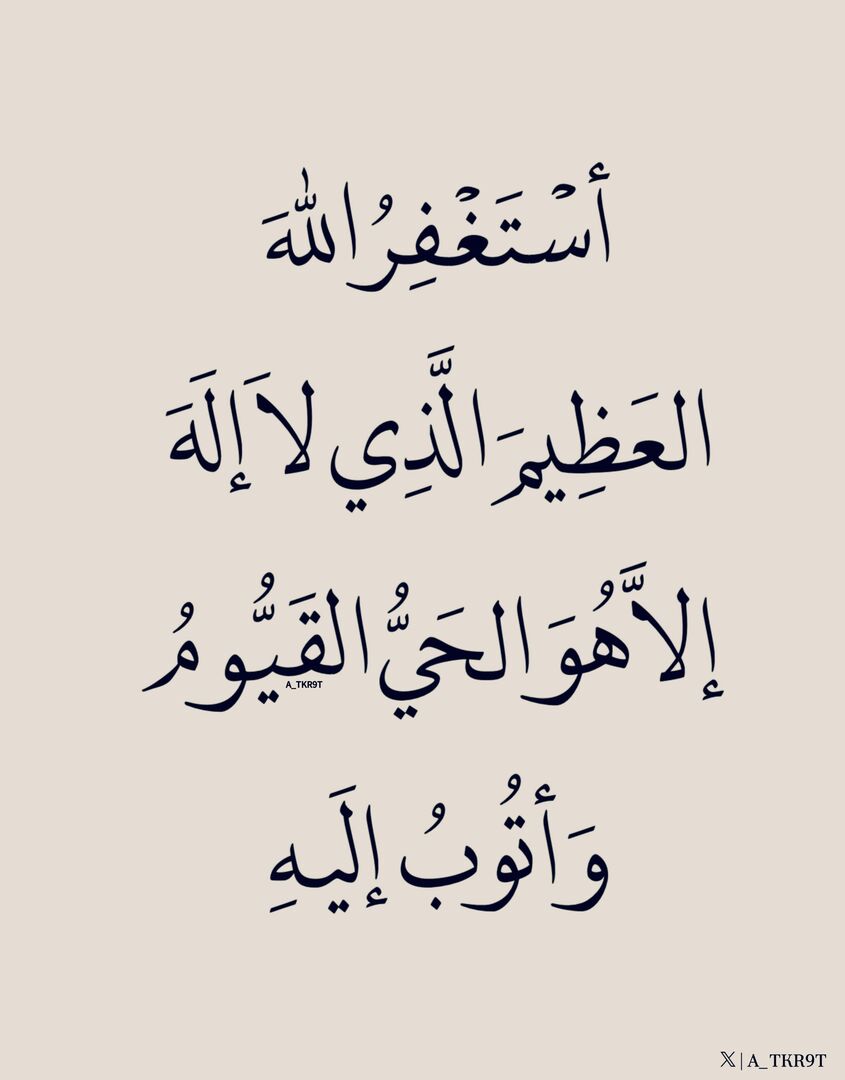 أَسْتَغْفِرُ اللهَ
العَظِيمَ الَّذِي لاَ إِلَهَ
إِلاَّ هُوَ الحَيُّ القَيُّومُ
A_TKR9T
وَأَتُوبُ إِلَيهِ
𝕏 | A_TKR9T